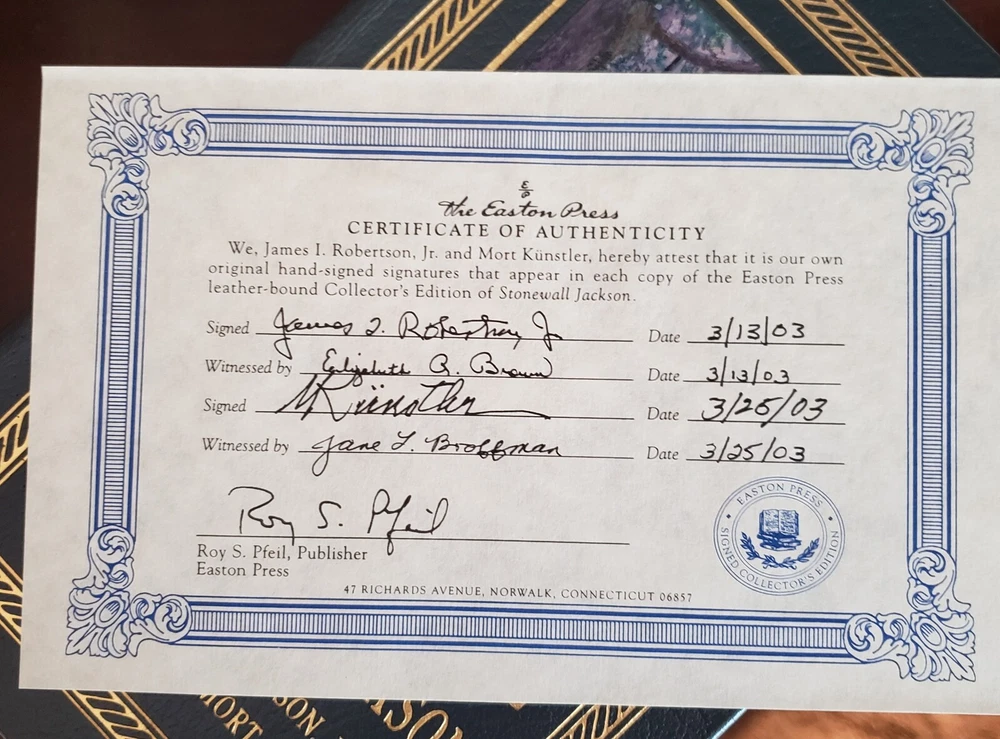 E/P
the Easton Press
CERTIFICATE OF AUTHENTICITY
We, James I. Robertson, Jr. and Mort Künstler, hereby attest that it is our own
original hand-signed signatures that appear in each copy of the Easton Press
leather-bound Collector's Edition of Stonewall Jackson.
Signed James I. Robertson, Jr Date 3/13/03
Witnessed by Elizabeth A. Brown Date 3/13/03
Signed MKünstler Date 3/25/03
Witnessed by Jane L. Broffman Date 3/25/03
Roy S. Pfeil
Roy S. Pfeil, Publisher
Easton Press
EASTON PRESS
SIGNED COLLECTOR'S EDITION
47 RICHARDS AVENUE, NORWALK, CONNECTICUT 06857
SON
MORT